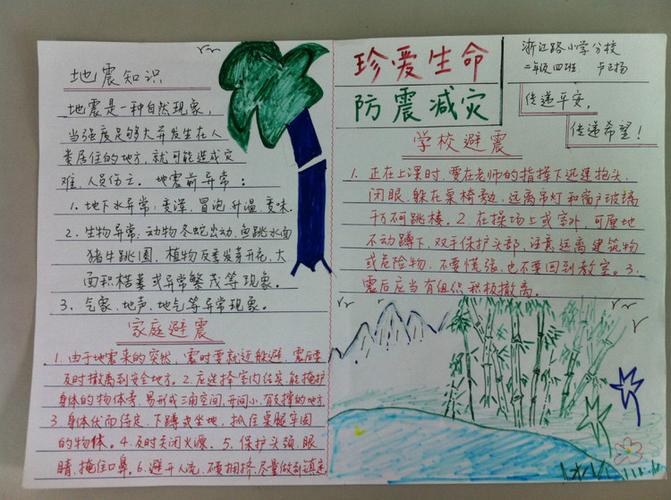 地震知识
地震是一种自然现象，
当强度足够大并发生在人
类居住的地方，就可能造成灾
难，人员伤亡。地震前异常：
1、地下水异常：变浑，冒泡，升温，变味.
2、生物异常，动物冬蛇出动，鱼跳水面
猪牛跳圈，植物反季发青开花，大
面积枯萎或异常繁茂等现象。
3、气象、地声、地气等异常现象。
家庭避震
1.由于地震来的突然，震时要就近躲避，震后要
及时撤离到安全地方。2.应选择室内结实，能掩护
身体的物体旁，易形成三角空间，开间小，有支撑的地方
3 身体伏而待定，下蹲或坐地，抓住桌腿牢固
的物体。4.及时关闭火源、5.保护头颈、眼
睛，掩住口鼻。6.避开人流，不要拥挤，尽量做到镇定
珍爱生命
防震减灾
浙江路小学分校
二年级四班
传递平安，
传递希望！
学校避震
1.正在上课时，要在老师的指挥下迅速抱头，
闭眼，躲在桌椅旁，远离吊灯和窗户玻璃
千万不可跳楼。2.在操场上或室外，可原地
不动蹲下，双手保护头部，注意远离建筑物
或危险物，不要慌张，也不要回到教室。3.
震后应当有组织积极撤离。